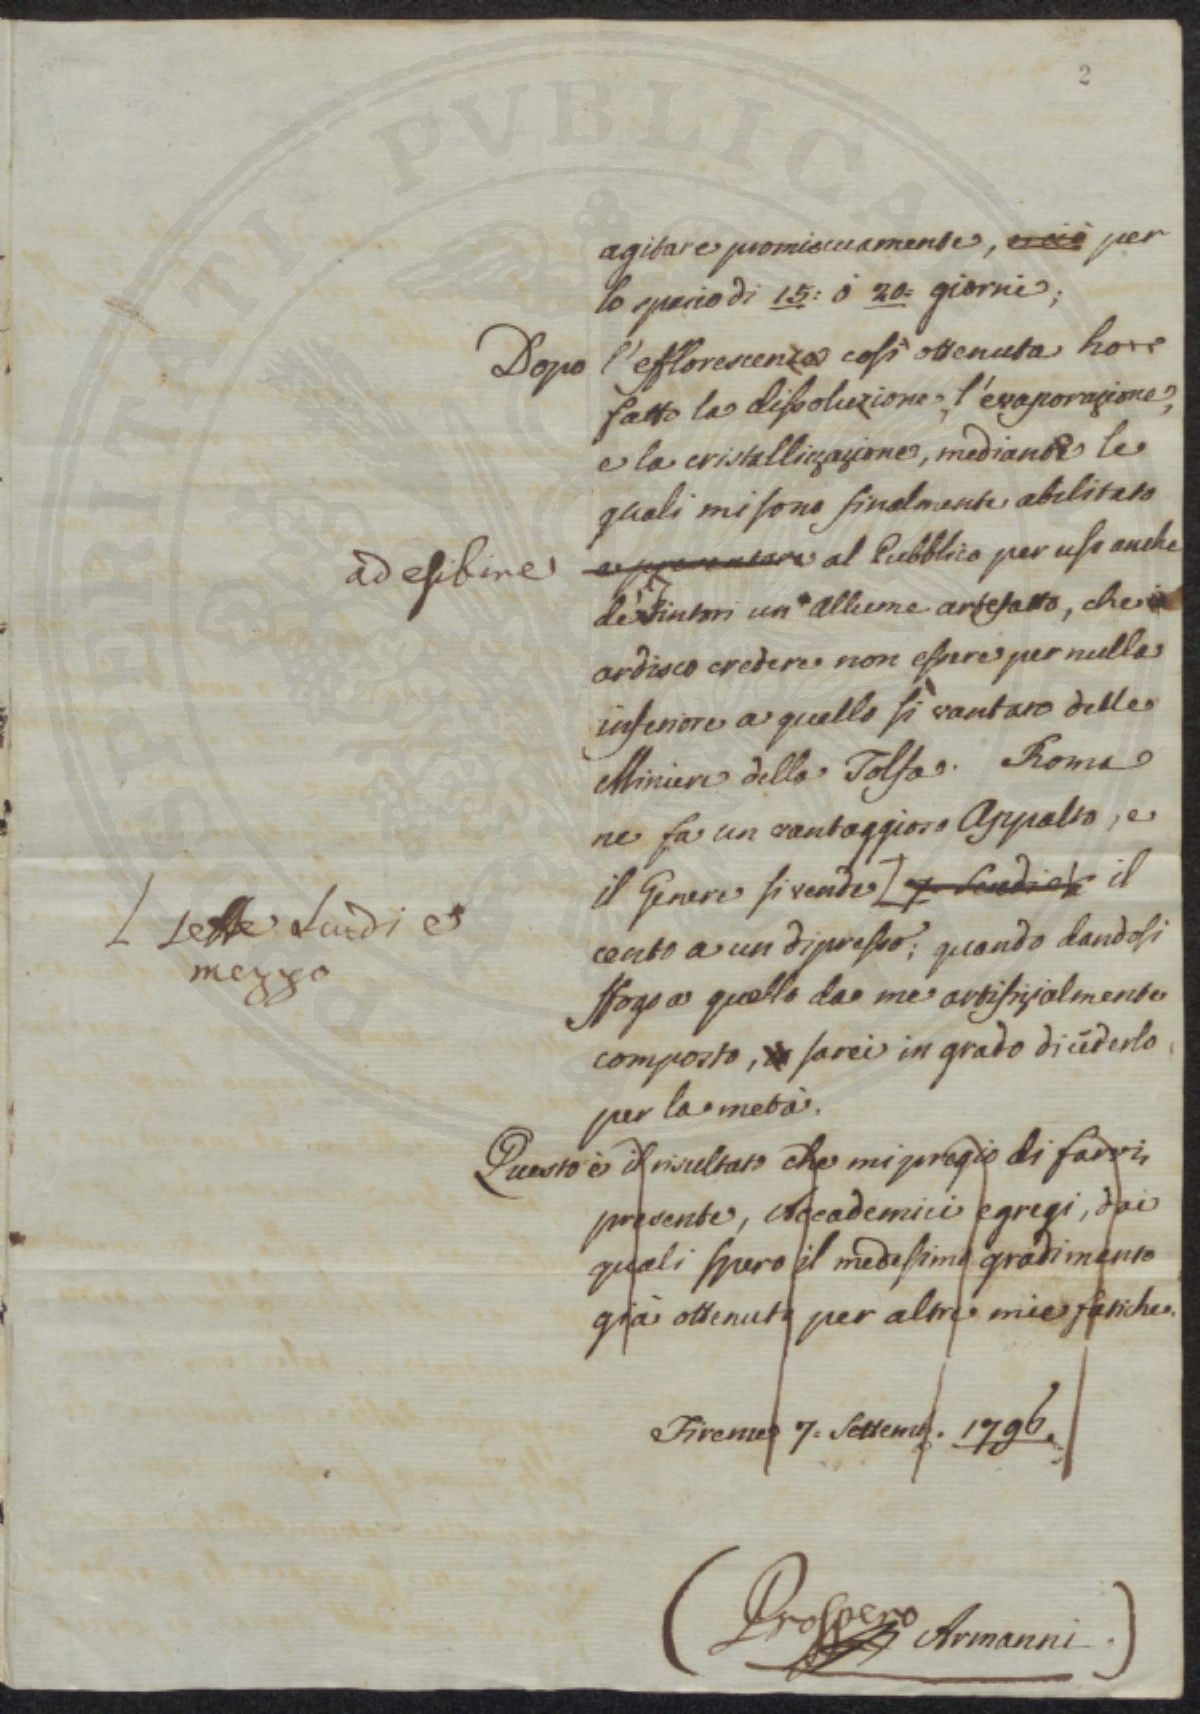 2
agitare promiscuamente, e ciò per
lo spacio di 15: ò 20: giorni;
Dopo l'efflorescenza così ottenuta hò
fatto la dissoluzione, l'evaporazione,
e la cristallizzazione, mediante le
quali mi sono finalmente abilitato
ad esibire
a presentare al Pubblico per uso anche
de' Tintori un' allume artefatto, che
ardisco credere non essere per nulla
inferiore a quello sì vantato delle
Miniere della Tolfa. Roma
ne fa un vantaggioso Appalto, e
il Genere si vende il
sette scudi e
mezzo
cento a un dipresso; quando dandosi
sfogo a quello da me artifizialmente
composto, sarei in grado di cederlo
per la metà.
Questo è il risultato che mi pregio di farvi
presente, Accademici egregi, dai
quali spero il medesimo gradimento
già ottenuto per altre mie fatiche.
Firenze 7. Settemb. 1796.
(Prospero Armanni.)
PERITATI PVBLICAE